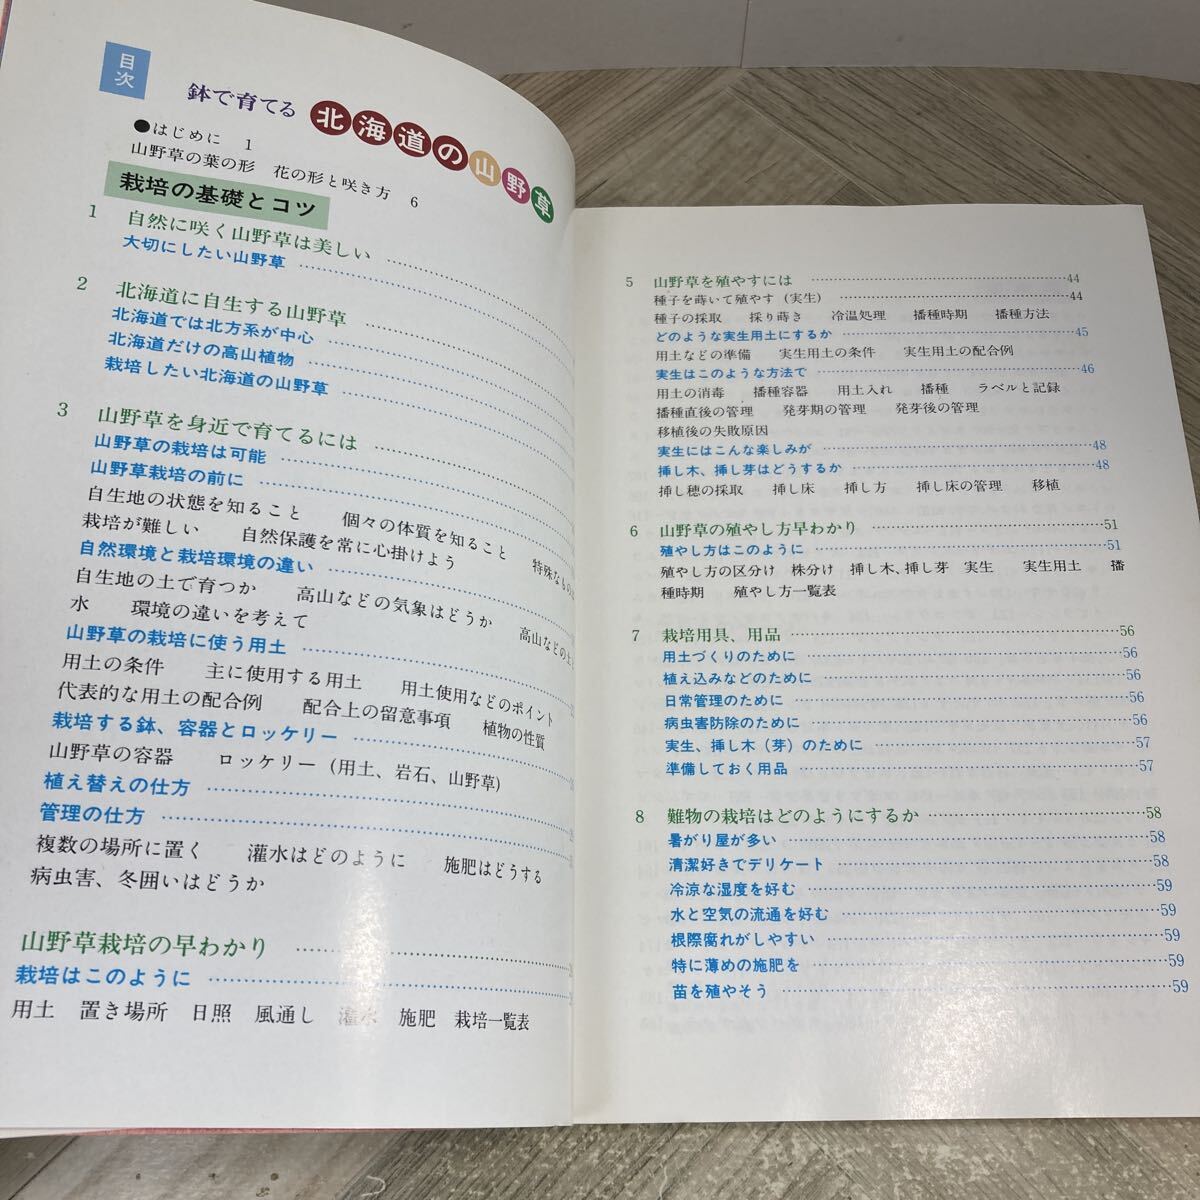 目次
鉢で育てる 北海道の山野草
●はじめに 1
山野草の葉の形 花の形と咲き方 6
栽培の基礎とコツ
1 自然に咲く山野草は美しい
大切にしたい山野草
2 北海道に自生する山野草
北海道では北方系が中心
北海道だけの高山植物
栽培したい北海道の山野草
3 山野草を身近で育てるには
山野草の栽培は可能
山野草栽培の前に
自生地の状態を知ること 個々の体質を知ること 特殊なもの
栽培が難しい 自然保護を常に心掛けよう
自然環境と栽培環境の違い
自生地の土で育つか 高山などの気象はどうか 高山などの土
水 環境の違いを考えて
山野草の栽培に使う用土
用土の条件 主に使用する用土 用土使用などのポイント
代表的な用土の配合例 配合上の留意事項 植物の性質
栽培する鉢、容器とロッケリー
山野草の容器 ロッケリー(用土、岩石、山野草)
植え替えの仕方
管理の仕方
複数の場所に置く 灌水はどのように 施肥はどうする
病虫害、冬囲いはどうか
山野草栽培の早わかり
栽培はこのように
用土 置き場所 日照 風通し 灌水 施肥 栽培一覧表
5 山野草を殖やすには 44
種子を蒔いて殖やす(実生) 44
種子の採取 採り蒔き 冷温処理 播種時期 播種方法
どのような実生用土にするか 45
用土などの準備 実生用土の条件 実生用土の配合例
実生はこのような方法で 46
用土の消毒 播種容器 用土入れ 播種 ラベルと記録
播種直後の管理 発芽期の管理 発芽後の管理
移植後の失敗原因
実生にはこんな楽しみが 48
挿し木、挿し芽はどうするか 48
挿し穂の採取 挿し床 挿し方 挿し床の管理 移植
6 山野草の殖やし方早わかり 51
殖やし方はこのように 51
殖やし方の区分け 株分け 挿し木、挿し芽 実生 実生用土 播
種時期 殖やし方一覧表
7 栽培用具、用品 56
用土づくりのために 56
植え込みなどのために 56
日常管理のために 56
病虫害防除のために 56
実生、挿し木(芽)のために 57
準備しておく用品 57
8 難物の栽培はどのようにするか 58
暑がり屋が多い 58
清潔好きでデリケート 58
冷涼な湿度を好む 59
水と空気の流通を好む 59
根際腐れがしやすい 59
特に薄めの施肥を 59
苗を殖やそう 59